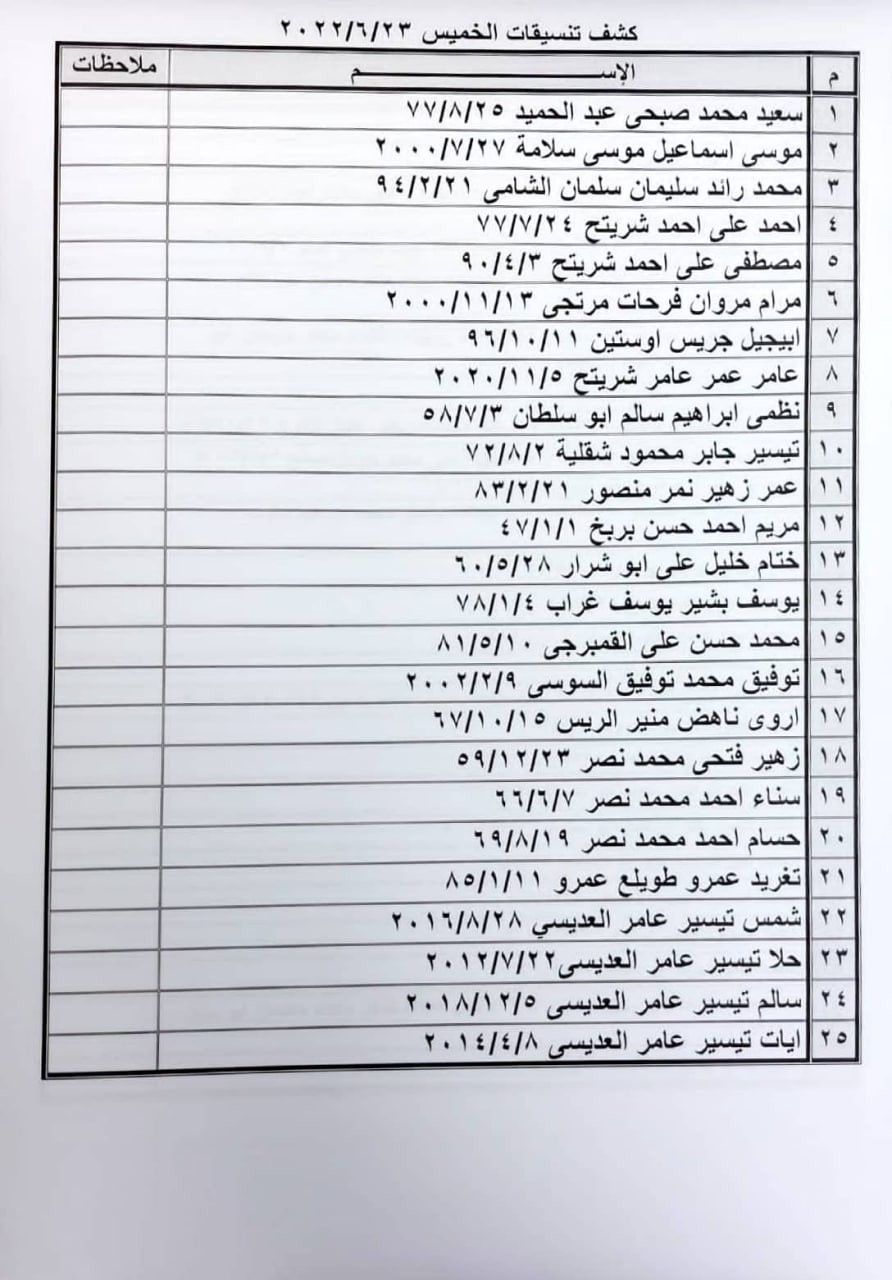 كشف تنسيقات الخميس ٢٠٢٢/٦/٢٣
م الإســــم ملاحظات
١ سعيد محمد صبحى عبد الحميد ٧٧/٨/٢٥
٢ موسى اسماعيل موسى سلامة ٢٠٠٠/٧/٢٧
٣ محمد رائد سليمان سلمان الشامى ٩٤/٢/٢١
٤ احمد على احمد شريتح ٧٧/٧/٢٤
٥ مصطفى على احمد شريتح ٩٠/٤/٣
٦ مرام مروان فرحات مرتجى ٢٠٠٠/١١/١٣
٧ ابيجيل جريس اوستين ٩٦/١٠/١١
٨ عامر عمر عامر شريتح ٢٠٢٠/١١/٥
٩ نظمى ابراهيم سالم ابو سلطان ٥٨/٧/٣
١٠ تيسير جابر محمود شقلية ٧٢/٨/٢
١١ عمر زهير نمر منصور ٨٣/٢/٢١
١٢ مريم احمد حسن بربخ ٤٧/١/١
١٣ ختام خليل على ابو شرار ٦٠/٥/٢٨
١٤ يوسف بشير يوسف غراب ٧٨/١/٤
١٥ محمد حسن على القمبرجى ٨١/٥/١٠
١٦ توفيق محمد توفيق السوسى ٢٠٠٢/٢/٩
١٧ اروى ناهض منير الريس ٦٧/١٠/١٥
١٨ زهير فتحى محمد نصر ٥٩/١٢/٢٣
١٩ سناء احمد محمد نصر ٦٦/٦/٧
٢٠ حسام احمد محمد نصر ٦٩/٨/١٩
٢١ تغريد عمرو طويلع عمرو ٨٥/١/١١
٢٢ شمس تيسير عامر العديسي ٢٠١٦/٨/٢٨
٢٣ حلا تيسير عامر العديسى ٢٠١٢/٧/٢٢
٢٤ سالم تيسير عامر العديسى ٢٠١٨/١٢/٥
٢٥ ايات تيسير عامر العديسى ٢٠١٤/٤/٨